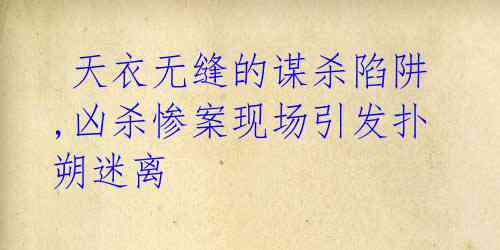 天衣无缝的谋杀陷阱
,凶杀惨案现场引发扑
朔迷离